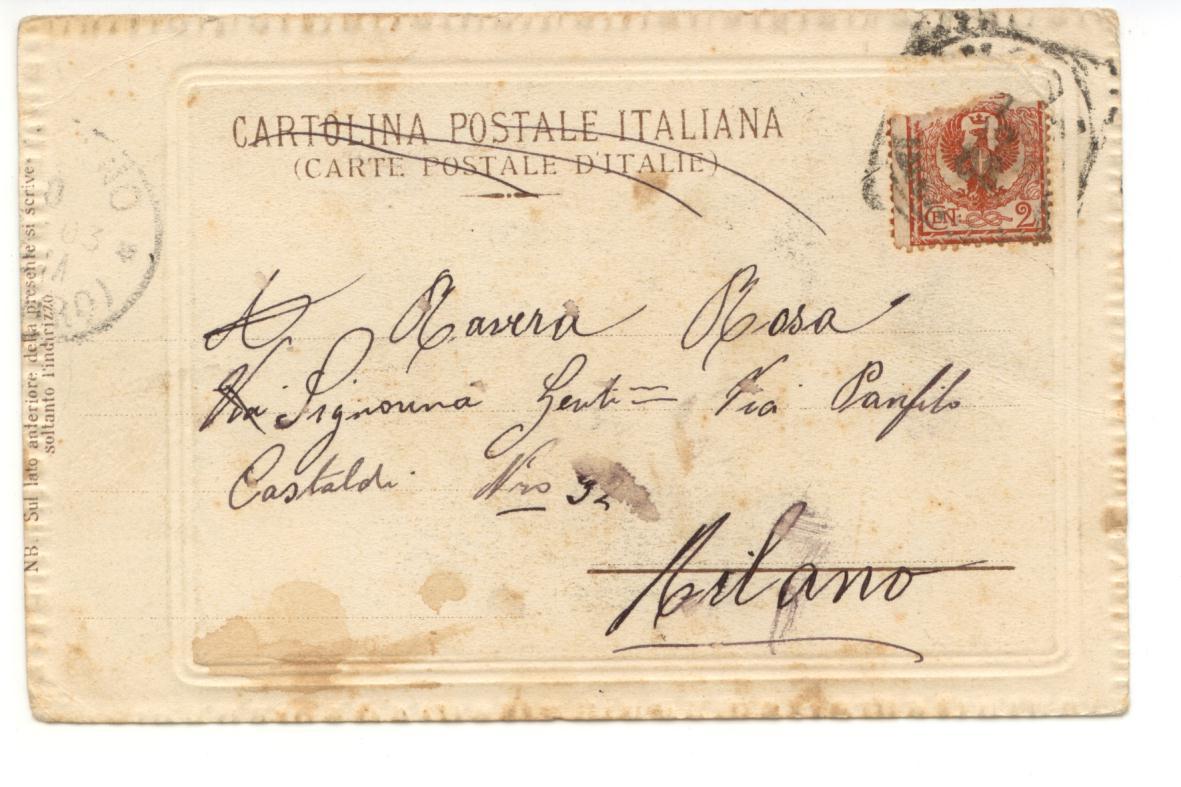 CARTOLINA POSTALE ITALIANA
(CARTE POSTALE D'ITALIE)
CEN: 2
NB. Sul lato anteriore della presente si scrive
soltanto l'indirizzo
A Ravera Rosa
Signorina Gent= Via Panfilo
Castaldi Nro 32
Milano